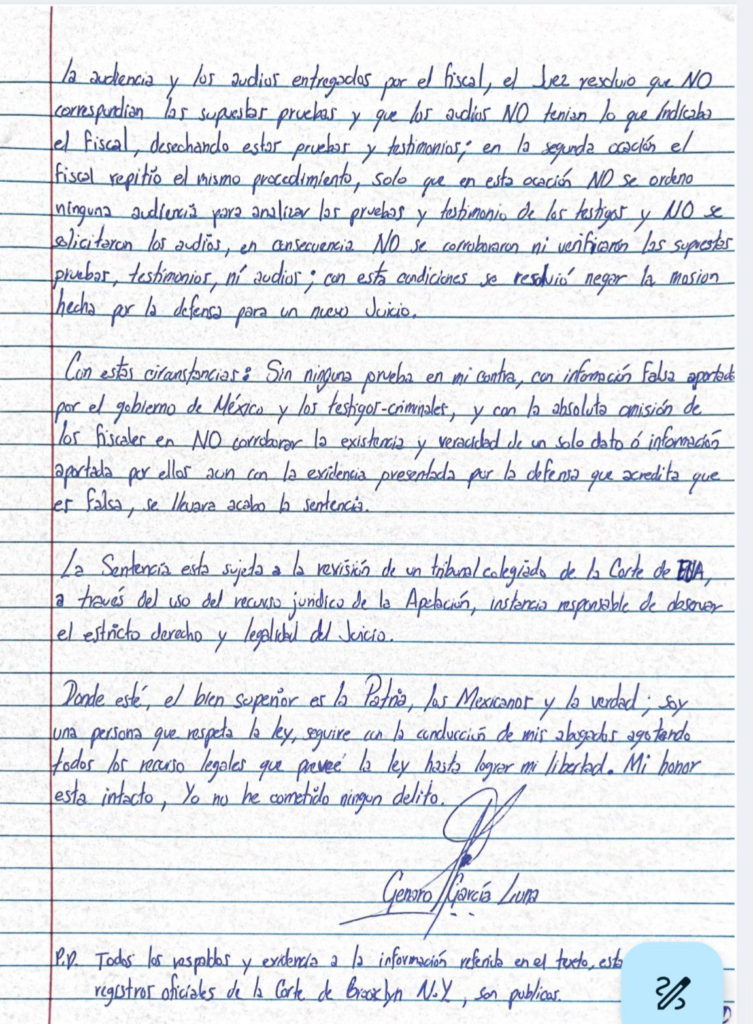 la audiencia y los audios entregados por el fiscal, el Juez resolvio que NO
correspondian las supuestas pruebas y que los audios NO tenian lo que indicaba
el Fiscal, desechando estas pruebas y testimonios; en la segunda ocación el
fiscal repitió el mismo procedimiento, solo que en esta ocación NO se ordeno
ninguna audiencia para analizar las pruebas y testimonio de los testigos y NO se
solicitaron los audios, en consecuencia NO se corroboraron ni verificaron las supuestas
pruebas, testimonios, ni audios; con esta condiciones se resolvió negar la mosion
hecha por la defensa para un nuevo Juicio.
Con estas circunstancias: Sin ninguna prueba en mi contra, con información falsa aportada
por el gobierno de México y los testigos-criminales, y con la absoluta omisión de
los fiscales en NO corroborar la existencia y veracidad de un solo dato ó información
aportada por ellos aun con la evidencia presentada por la defensa que acredita que
es falsa, se llevara acabo la sentencia.
La Sentencia esta sujeta a la revisión de un tribunal colegiado de la Corte de EUA,
a través del uso del recurso juridico de la Apelación, instancia responsable de observar
el estricto derecho y legalidad del Juicio.
Donde esté, el bien superior es la Patria, los Mexicanos y la verdad; soy
una persona que respeta la ley, seguire con la conducción de mis abogados agotando
todos los recurso legales que preveé la ley hasta lograr mi libertad. Mi honor
esta intacto, Yo no he cometido ningun delito.
Genaro García Luna
P.D. Todos los respaldos y evidencia a la información referida en el texto, esta
registros oficiales de la Corte de Brooklyn N.Y, son publicas.